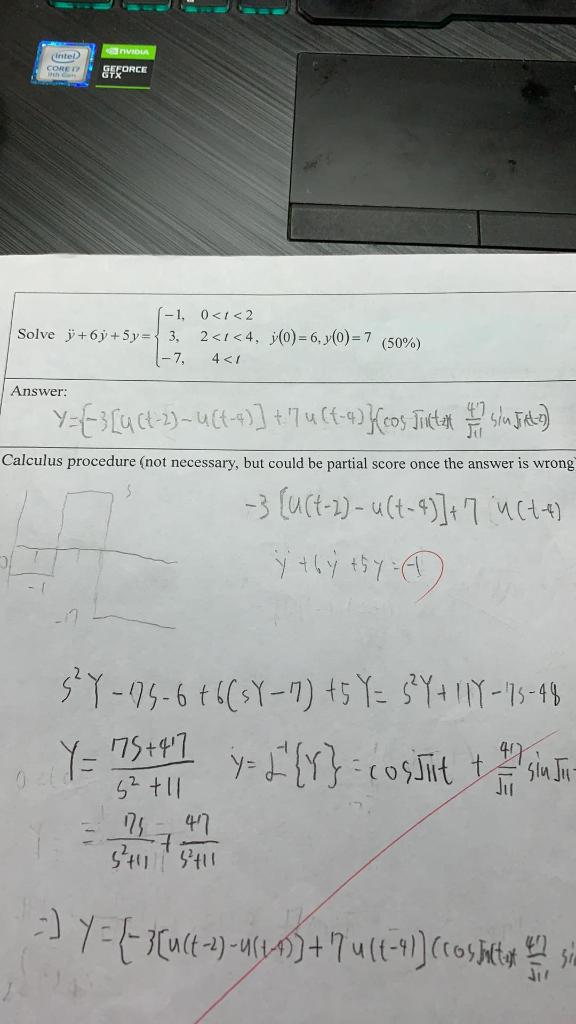 intel
CORE i7
9th Gen
NVIDIA
GEFORCE
GTX
Solve ÿ+6ẏ+5y={-1, 0<t<2
3, 2<t<4, ẏ(0)=6, y(0)=7 (50%)
-7, 4<t
Answer:
y={-3[u(t-2)-u(t-4)]+7u(t-4)}(cos√11(t-2) 47/√11 sin√11(t-2)
Calculus procedure (not necessary, but could be partial score once the answer is wrong)
3
-3[u(t-2)-u(t-4)]+7 u(t-4)
ÿ+6ẏ+5y=-1
-1
-7
s²Y-7s-6+6(sY-7)+5Y=s²Y+11Y-7s-48
Y=7s+47/s²+11 y=L⁻¹{Y}=cos√11t+47/√11 sin√11
=7s/s²+11+47/s²+11
=> y={-3[u(t-2)-u(t-4)]+7u(t-4)](cos√11(t-2) 47/√11 si